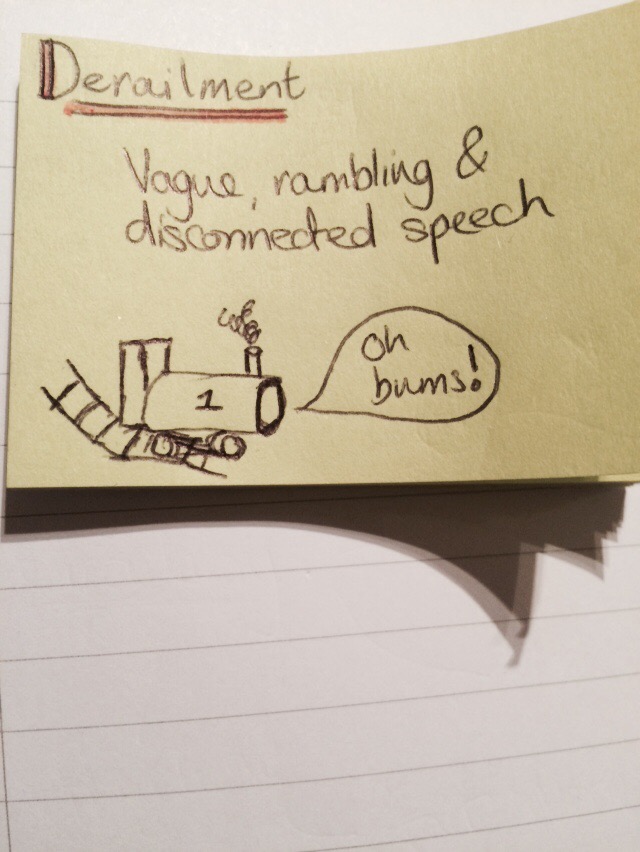 Derailment
Vague, rambling &
disconnected speech
Oh
bums!
1